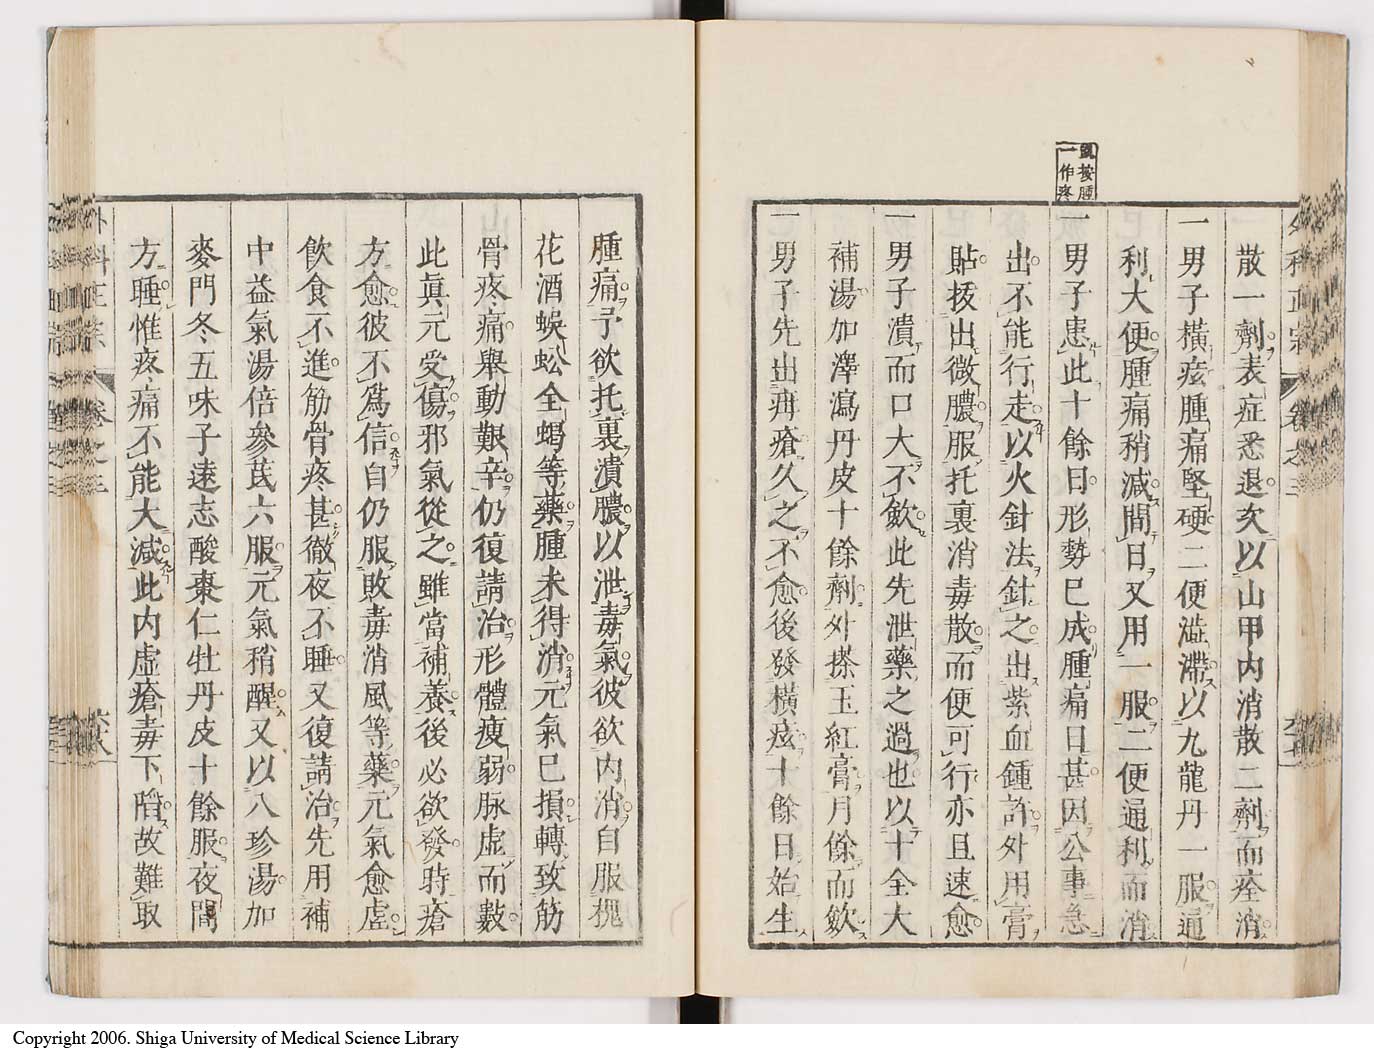 散一劑表症悉退次以山甲内消散二劑而痊消
一男子橫痃腫痛堅硬二便澁滯以九龍丹一服通
利大便腫痛稍減間日又用一服二便通利而消
一男子患此十餘日形勢已成腫痛日甚因公事急
出不能行走以火針法針之出紫血鍾許外用膏
貼拔出微膿服托裏消毒散而便可行亦且速愈
一男子潰而口大不斂此先泄藥之過也以十全大
補湯加澤瀉丹皮十餘劑外搽玉紅膏月餘而斂
一男子先出疳瘡久之不愈後發橫痃十餘日始生
腫痛予欲托裏潰膿以泄毒氣彼欲内消自服槐
花酒蜈蚣全蝎等藥腫未得消元氣已損轉致筋
骨疼痛舉動艱辛仍復請治形體瘦弱脉虛而數
此眞元受傷邪氣從之雖當補養後必欲發時瘡
方愈彼不爲信自仍服敗毒消風等藥元氣愈虛
飲食不進筋骨疼甚徹夜不睡又復請治先用補
中益氣湯倍參芪六服元氣稍醒又以八珍湯加
麥門冬五味子遠志酸棗仁牡丹皮十餘服夜間
方睡惟疼痛不能大減此内虛瘡毒下陷故難取
按腫
一作疼
外科正宗
卷之三
Copyright 2006. Shiga University of Medical Science Library